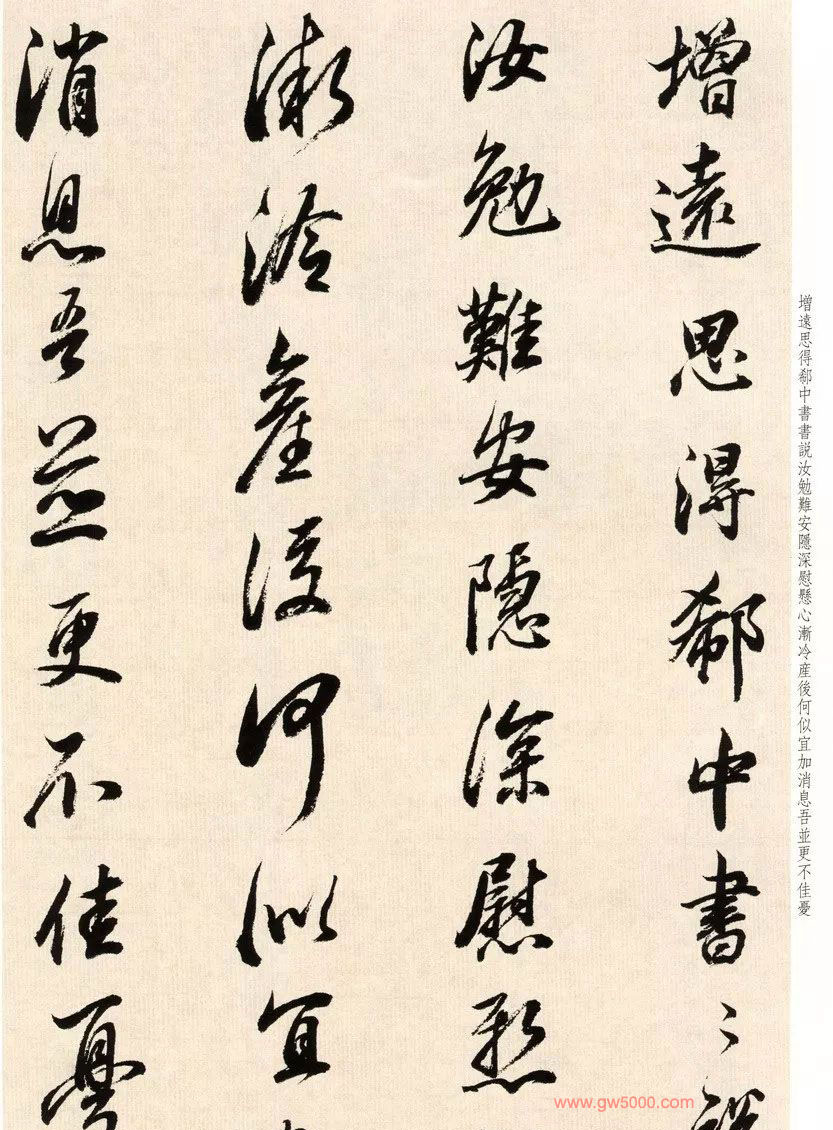 增遠思得郗中書〻説
汝勉難安隱深慰懸
漸冷產後何似宜
消息吾並更不佳憂
增遠思得郗中書書説汝勉難安隱深慰懸心漸冷産後何似宜加消息吾並更不佳憂
www.gw5000.com